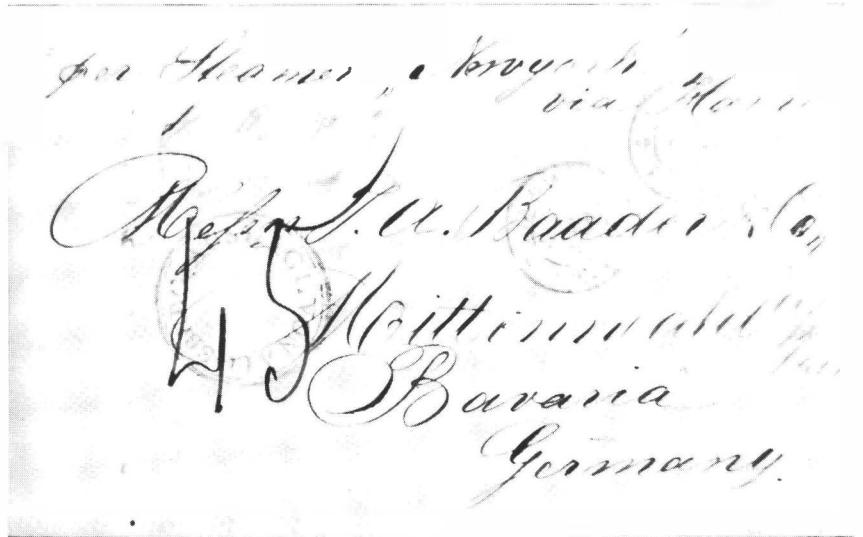 per Steamer „Newyork"
via
Messrs J. A. Baader & Co,
Mittenwald
Bavaria
Germany.
45